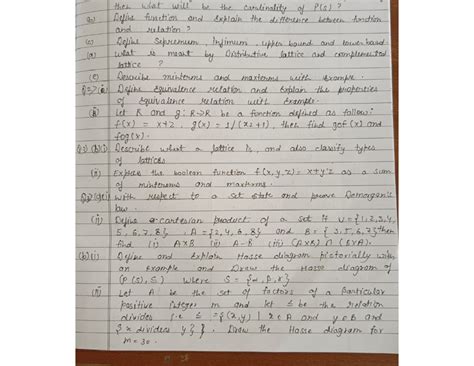 then what will be the cardinality of P(S) ?
Define function and explain the difference between function
and relation ?
(c) Define Supremum, Infimum, upper bound and lower bound
(d) what is meant by Distributive lattice and complemented
lattice ?
(e) Describe minterms and maxterms with example.
(a) Define equivalence relation and explain the properties
of equivalence relation with example.
(ii) Let R and g: R→R be a function defined as follow:
f(x) = x+2, g(x) = 1/(x2+1), then find gof(x) and
fog(x).
(b)(i) Describe what a lattice is, and also classify types
of lattices
(ii) Express the boolean function f(x,y,z) = x+y'z as a sum
of minterms and maxterms.
With respect to a set state and prove Demorgan's
law.
(ii) Define cartesian product of a set If U={1,2,3,4,
5,6,7,8}, A={2,4,6,8} and B={3,5,6,7} then
find (i) AXB (ii) A-B (iii) (AXB) ∩ (BXA).
(b)(i) Define and Explain Hasse diagram pictorially with
an Example and Draw the Hasse diagram of
(P(S),≤) where S =
(ii) Let A be the set of factors of a Particular
positive integer m and let ≤ be the relation
divides i.e ≤ ={(x,y) | x ∈ A and y ∈ B and
{x divides y}}. Draw the Hasse diagram for
m=30.